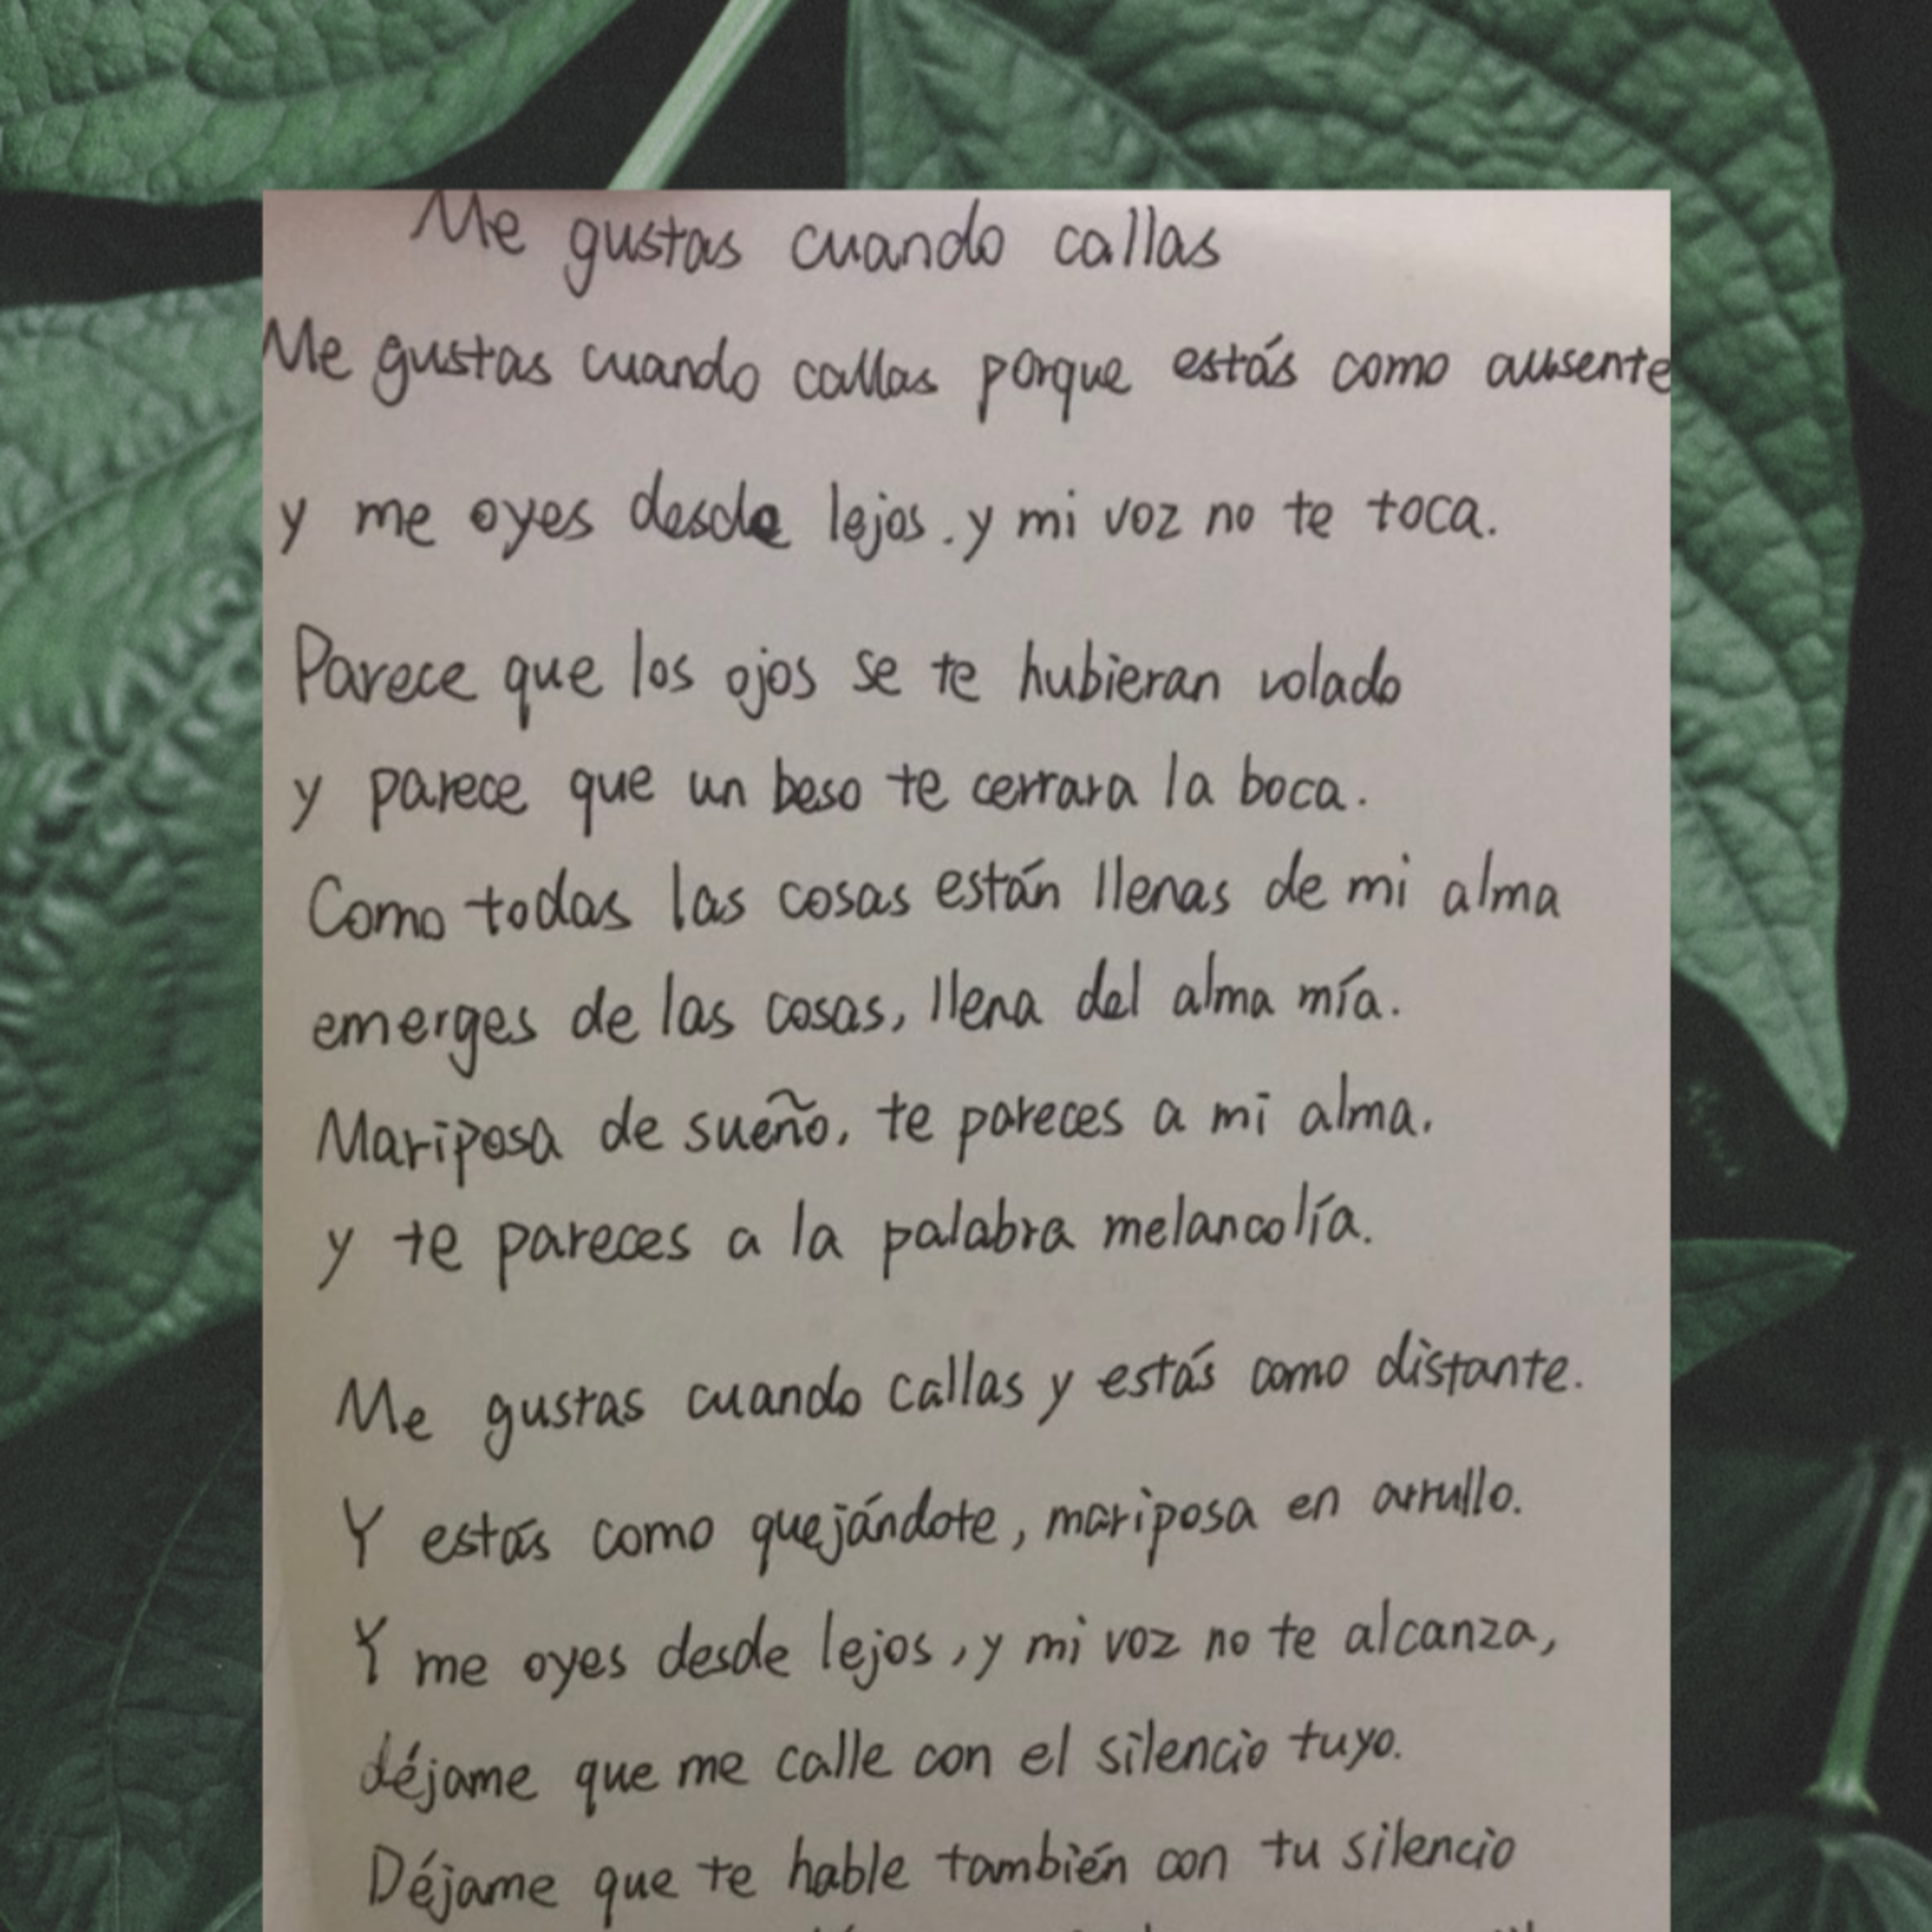 Me gustas cuando callas
Me gustas cuando callas porque estás como ausente
y me oyes desde lejos. y mi voz no te toca.
Parece que los ojos se te hubieran volado
y parece que un beso te cerrara la boca.
Como todas las cosas están llenas de mi alma
emerges de las cosas, llena del alma mía.
Mariposa de sueño, te pareces a mi alma.
y te pareces a la palabra melancolía.
Me gustas cuando callas y estás como distante.
Y estás como quejándote, mariposa en arrullo.
Y me oyes desde lejos, y mi voz no te alcanza,
déjame que me calle con el silencio tuyo.
Déjame que te hable también con tu silencio